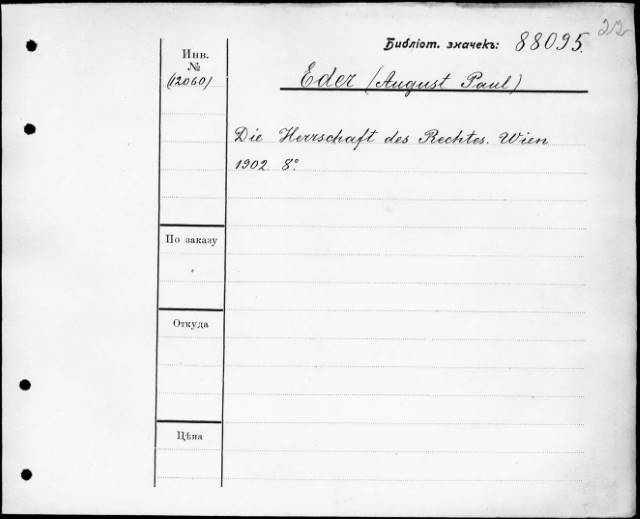 22
Библіот. значекъ: 88095.
Инв.
№
(12060)
Eder (August Paul)
Die Herrschaft des Rechtes. Wien
1902. 8°.
По заказу
Откуда
Цѣна